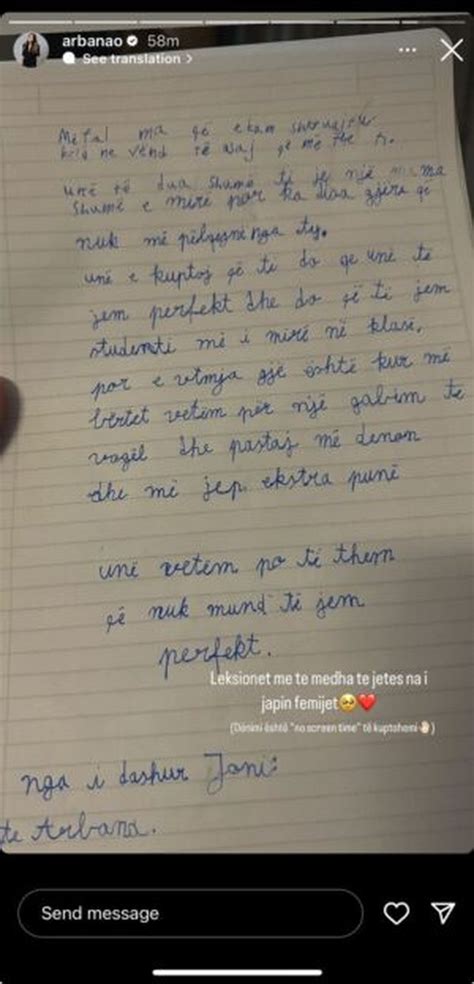 arbanao 58m
See translation >
Me fal ma që e kam shkruajtur
në vend të saj që me the ti.
unë të dua shumë ti je një mama
shumë e mirë por ka disa gjëra që
nuk më pëlqejnë nga ty.
unë e kuptoj që ti do që unë të
jem perfekt dhe do që ti jem
studenti më i mirë në klasë,
por e vetmja gjë është kur më
bërtet vetëm për një gabim të
vogël dhe pastaj më denon
dhe më jep ekstra punë
unë vetëm po të them
që nuk mund të jem
perfekt.
Leksionet me te medha te jetes na i
japin femijet🥺❤️
(Dënimi është "no screen time" të kuptohemi🤚🏻)
nga i dashur Joni:
te Arbana.
Send message